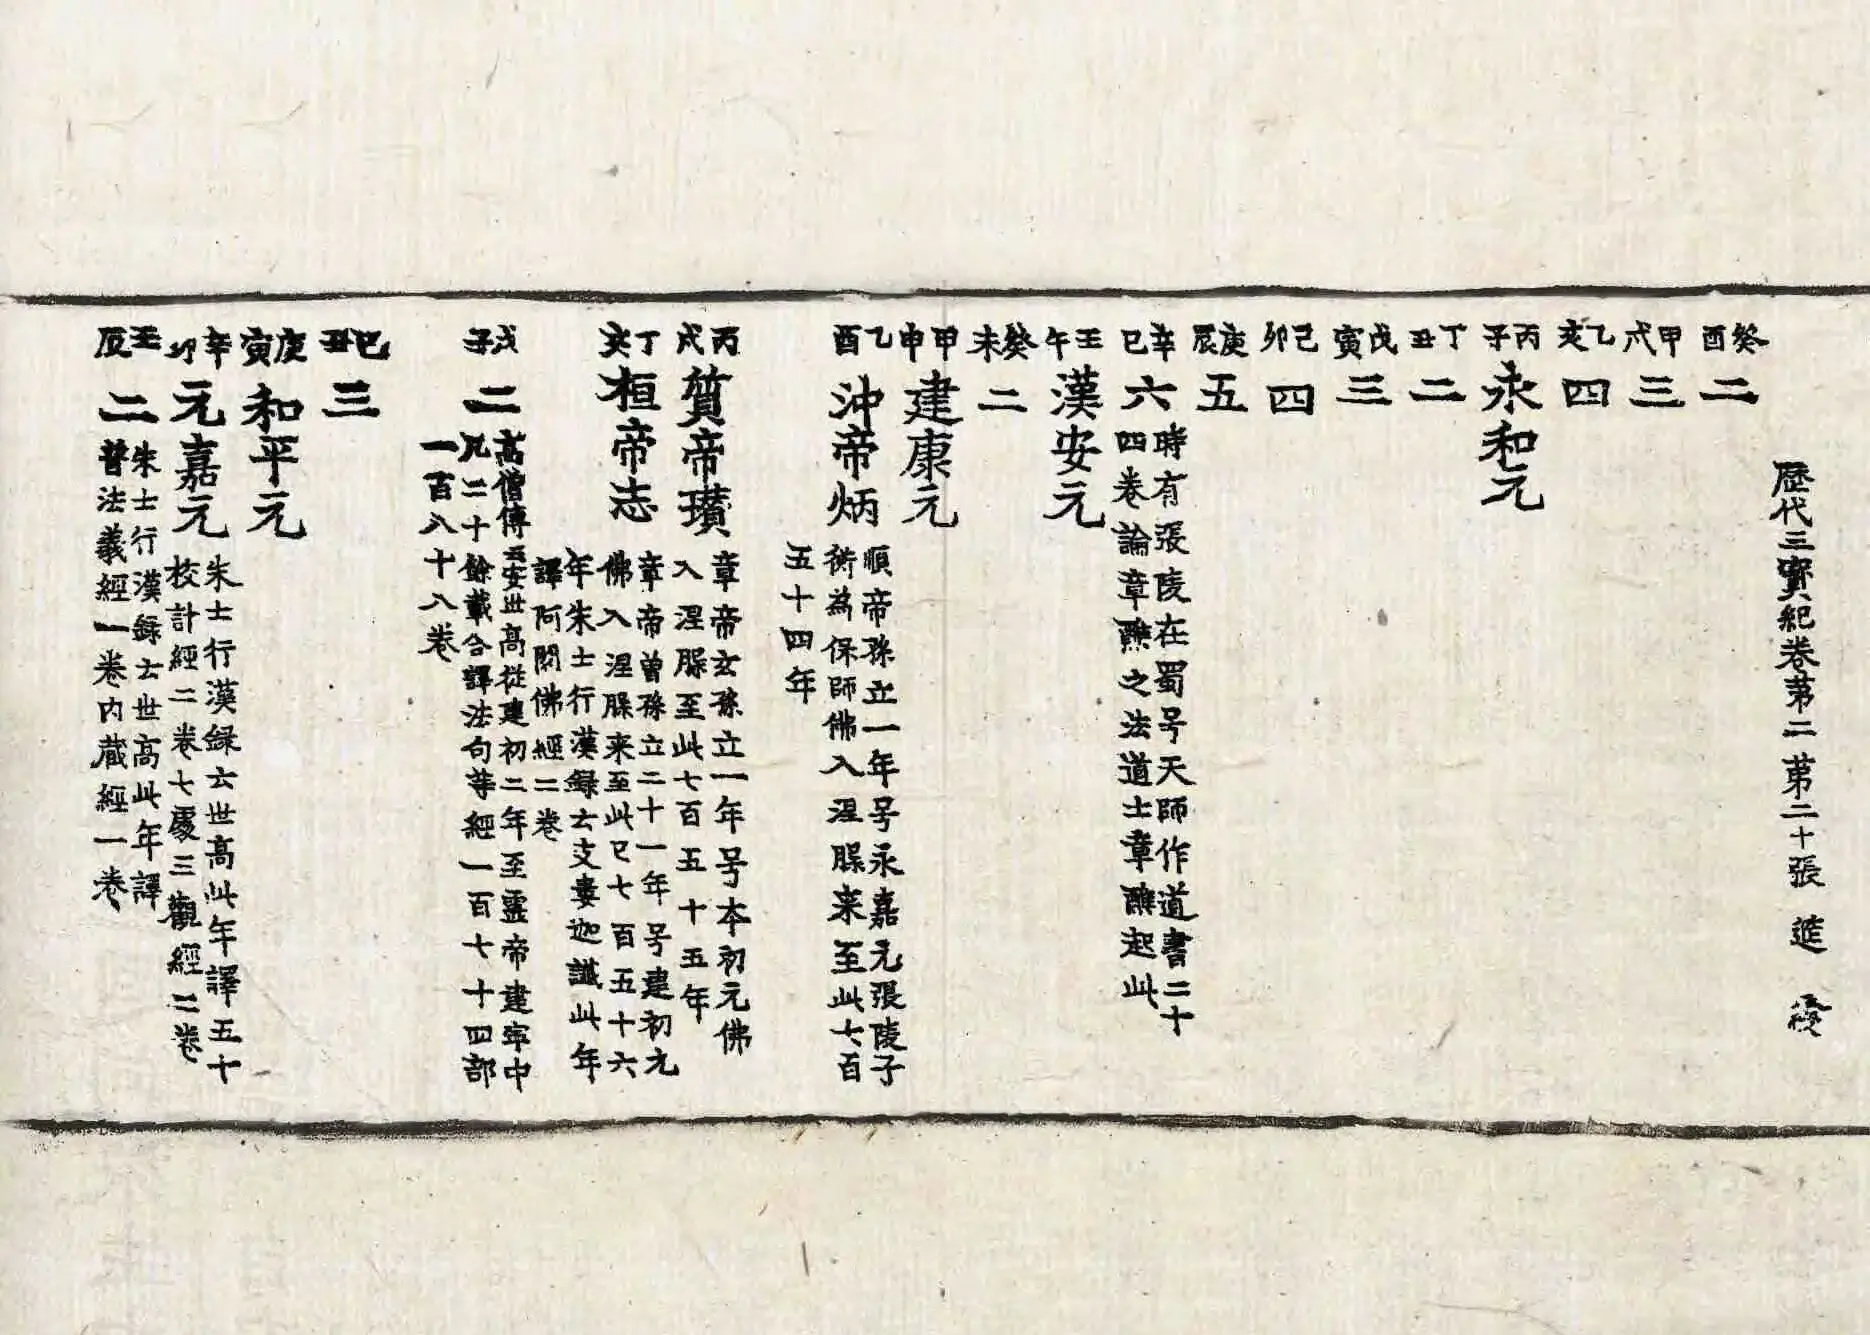 歷代三寳紀卷苐二 苐二十張 莚
癸酉 二
甲戌 三
乙亥 四
丙子 永和元
丁丑 二
戊寅 三
己卯 四
庚辰 五
辛巳 六 時有張陵在蜀号天師作道書二十
四卷論章醮之法道士章醮起此
壬午 漢安元
癸未 二
甲申 建康元
乙酉 沖帝炳 順帝孫立一年号永嘉元張陵子
衡為保師佛入涅槃来至此七百
五十四年
丙戌 質帝瓚 章帝玄孫立一年号本初元佛
入涅槃至此七百五十五年
丁亥 桓帝志 章帝曽孫立二十一年号建初元
佛入涅槃来至此已七百五十六
年朱士行漢録云支婁迦讖此年
譯阿閦佛經二卷
戊子 二 髙僧傳云安世髙從建初二年至靈帝建寧中
凡二十餘載合譯法句等經一百七十四部
一百八十八卷
巳丑 三
庚寅 和平元
辛卯 元嘉元 朱士行漢録云世髙此年譯五十
校計經二卷七處三觀經二卷
壬辰 二 朱士行漢録云世髙此年譯
普法義經一卷内蔵經一卷